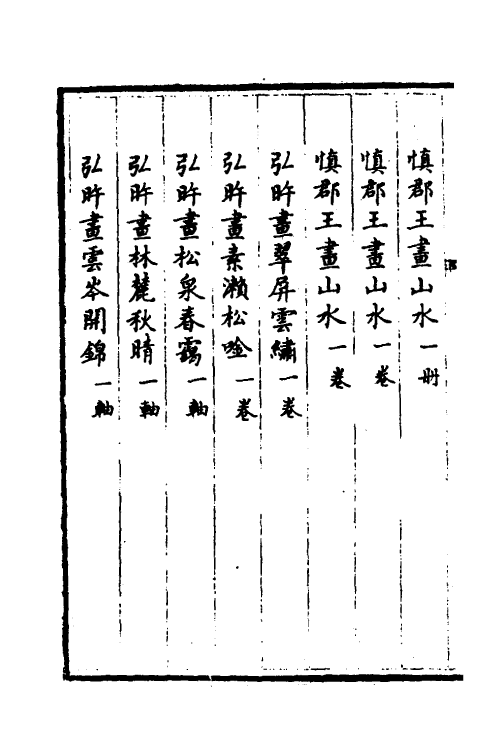 慎郡王畫山水一冊
慎郡王畫山水一卷
慎郡王畫山水一卷
弘旿畫翠屏雲繡一卷
弘旿畫素瀨松喰一卷
弘旿畫松泉春靄一軸
弘旿畫林麓秋晴一軸
弘旿畫雲岑開錦一軸